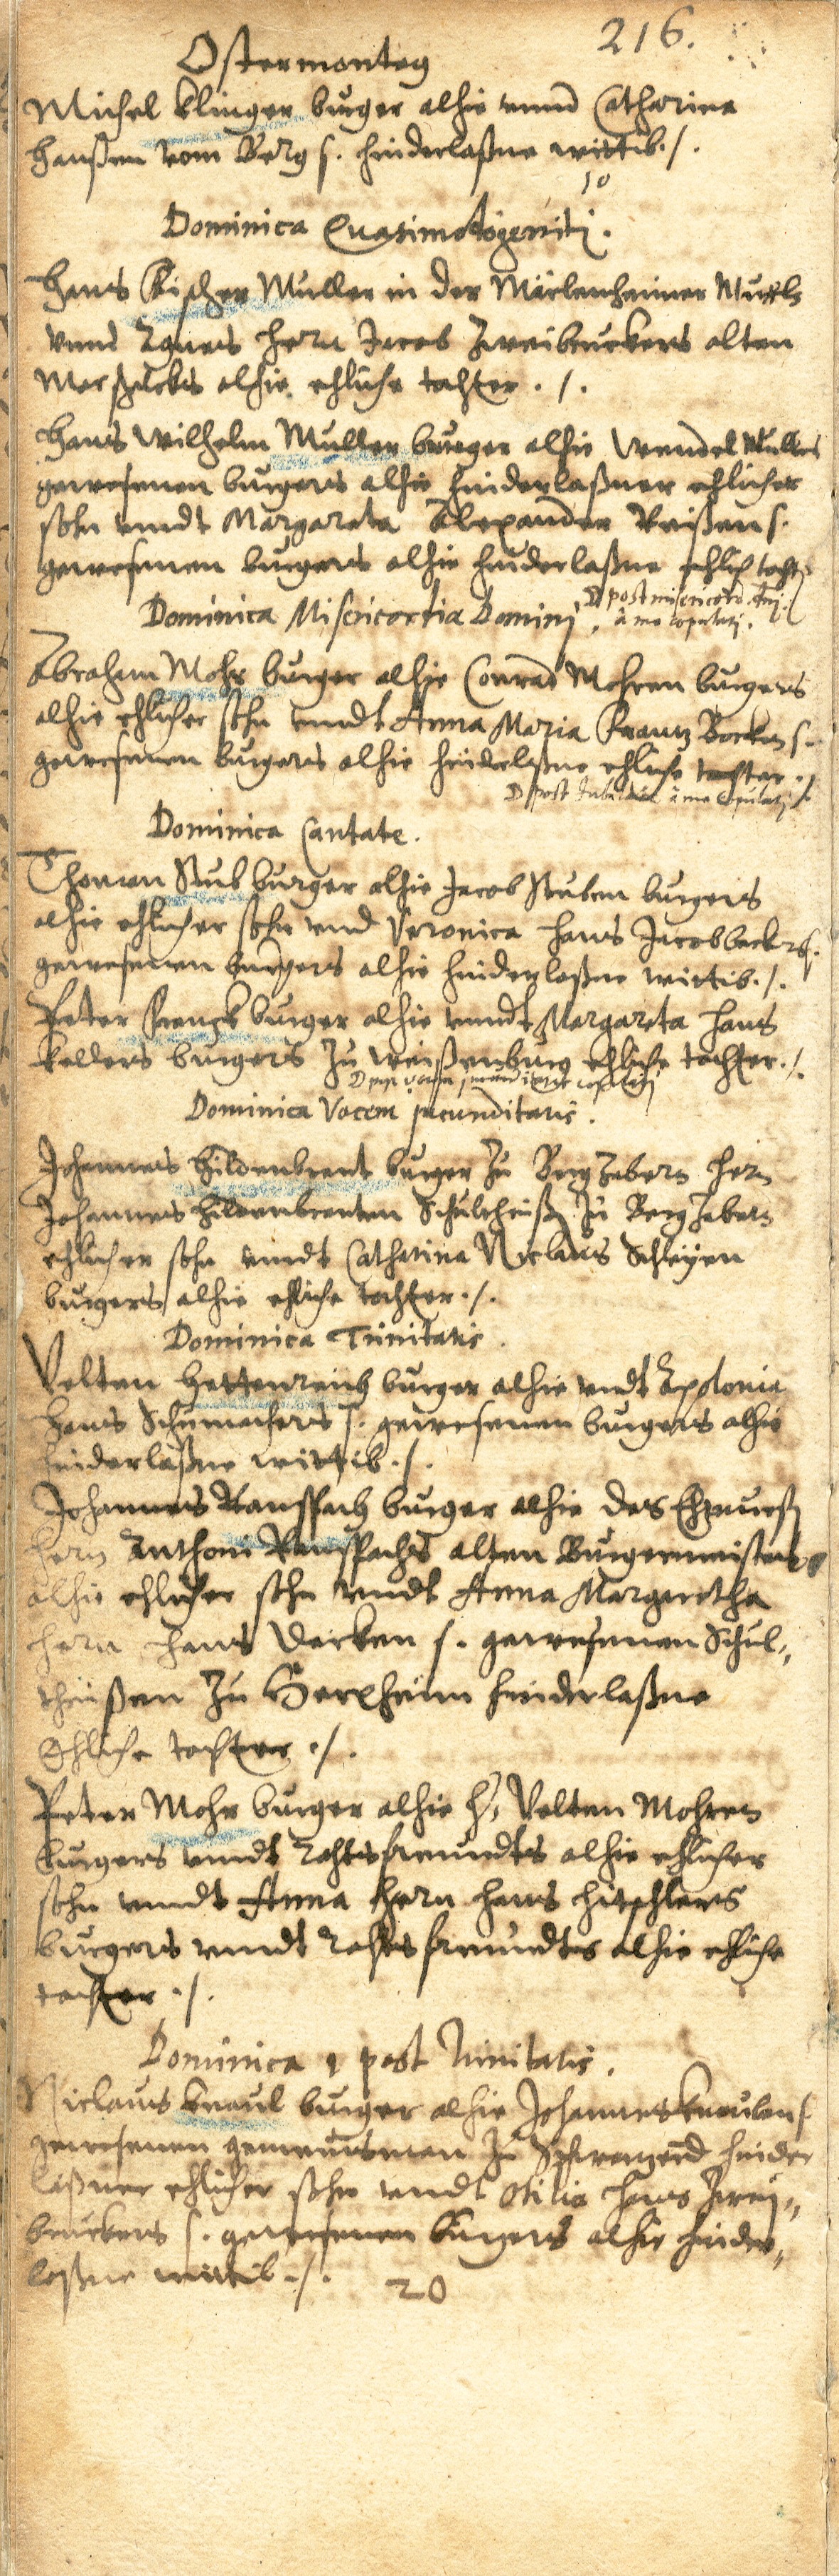 216.
Ostermontag
Michel Klinger burger alhie unnd Catharina
Hanßen vom Berg s. hinderlaßne wittib ./.
10
Dominica Quasimodogeniti.
Hans Müller in der Mühl
unnd Agnes Herrn Jacob Zweibruckers alten
alhie ehliche tochter ./.
Hans Wilhelm Muller burger alhie Wendel Mullers
gewesenen burgers alhie hinderlaßner ehlicher
sohn undt Margareta Alexander s.
gewesenen burgers alhie hinderlaßne ehlich tocht.
D post misericord. dni.
Dominica Misericordia Domini. à me copulati.
Abraham Mohr burger alhie Conrad Mohren burgers
alhie ehlicher sohn undt Anna Maria Frantz s.
gewesenen burgers alhie hinderlaßne ehliche tochter ./.
D post à me copulati
Dominica Cantate.
Thoman Stub burger alhie Jacob Stuben burgers
alhie ehlicher sohn und Veronica Hans Jacob beckers s.
gewesenen burgers alhie hinderlaßne wittib ./.
Peter burger alhie undt Margareta Hans
Kellers burgers zu Weißenburg ehliche tochter ./.
D post vocem jucunditatis copulati
Dominica Vocem jucunditatis.
Johannes Hildenbrant burger zu Bergzabern Herrn
Johannes Hildenbranten Schultheiß zu Bergzabern
ehlicher sohn undt Catharina Niclaus Schleyen
burgers alhie ehliche tochter ./.
Dominica Trinitatis.
Velten Hettenreich burger alhie undt Apolonia
Hans Schumachers s. gewesenen burgers alhie
hinderlaßne wittib ./.
Johannes Ranspach burger alhie des
Herrn Anthoni Ranspachs alten Burgermeisters
alhie ehlicher sohn undt Anna Margretha
Herrn Hans s. gewesenen Schul„
theißen zu Herxheim hinderlaßne
Ehliche tochter ./.
Peter Mohr burger alhie H. Velten Mohren
burgers undt Rahtsfreundts alhie ehlicher
sohn undt Anna Herrn Hans
burgers undt Rahtsfreundts alhie ehliche
tochter ./.
Dominica 1 post Trinitatis.
Niclaus Knaul burger alhie Johannes Knaulen s.
gewesenen gemeinsman zu hinder
laßner ehlicher sohn undt Otilia Hans Zwey„
bruckers s. gewesenen burgers alhie hinder„
laßne wittib ./.
20